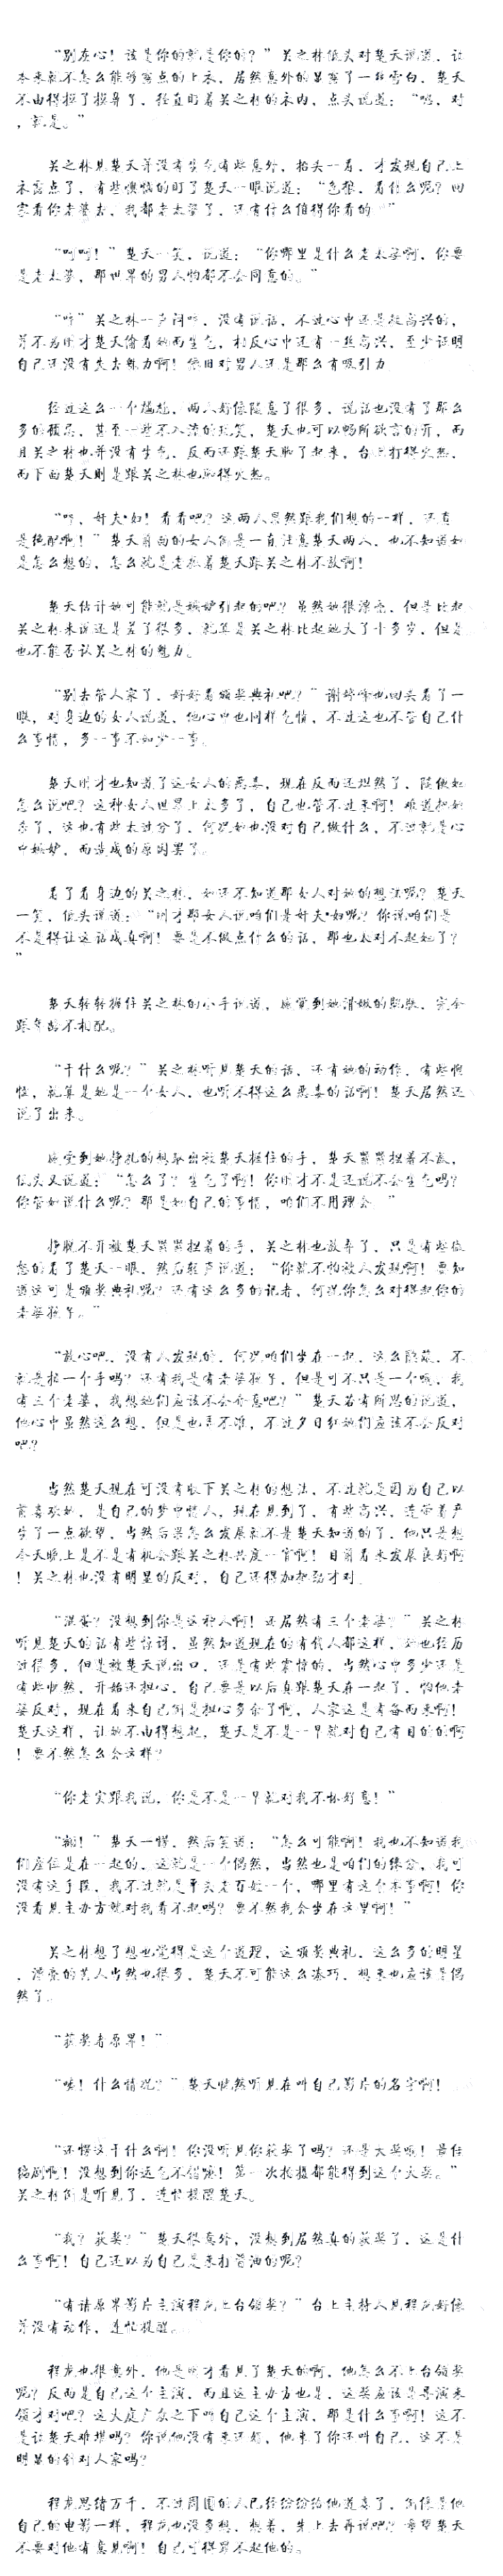 “别灰心！该是你的就是你的？”关之林低头对楚天说道，让
本来就不怎么能够露点的上衣，居然意外的显露了一丝雪白，楚天
不由得摸了摸鼻子，径直盯着关之林的衣内，点头说道：“嗯，对
，就是。”
关之林见楚天并没有生气有些意外，抬头一看，才发现自己上
衣露点了，有些懊恼的盯了楚天一眼说道：“色狼，看什么呢？回
家看你老婆去，我都老太婆了，还有什么值得你看的！”
“呵呵！”楚天一笑，说道：“你哪里是什么老太婆啊，你要
是老太婆，那世界的男人恐都不会同意的。”
“哼”关之林一声闷哼，没有说话，不过心中还是挺高兴的，
并不为刚才楚天偷看她而生气，相反心中还有一丝高兴，至少证明
自己还没有失去魅力啊！依旧对男人还是那么有吸引力
经过这么一个尴尬，两人好像随意了很多，说话也没有了那么
多的顾忌，甚至一些不入流的玩笑，楚天也可以畅所欲言的开，而
且关之林也并没有生气，反而还跟楚天聊了起来，台上打得火热，
而下面楚天则是跟关之林也聊得火热。
“哼，奸夫•妇！看看吧？这两人果然跟我们想的一样，还真
是绝配啊！”楚天前面的女人倒是一直注意楚天两人，也不知道她
是怎么想的，怎么就是老抓着楚天跟关之林不放啊！
楚天估计她可能就是嫉妒引起的吧？虽然她很漂亮，但是比起
关之林来说还是差了很多，就算是关之林比起她大了十多岁，但是
也不能否认关之林的魅力。
“别去管人家了，好好看颁奖典礼吧？”谢婷婷也回头看了一
眼，对身边的女人说道，他心中也同样气愤，不过这也不管自己什
么事情，多一事不如少一事。
楚天刚才也知道了这女人的恶毒，现在反而还坦然了，随便她
怎么说吧？这种女人世界上太多了，自己也管不过来啊！难道把她
杀了，这也有些太过分了，何况她也没对自己做什么，不过就是心
中嫉妒，而造成的原因罢了。
看了看身边的关之林，她还不知道那女人对她的想法呢？楚天
一笑，低头说道：“刚才那女人说咱们是奸夫•妇呢？你说咱们是
不是得让这话成真啊！要是不做点什么的话，那也太对不起她了？
”
楚天轻轻握住关之林的小手说道，感觉到她滑嫩的肌肤，完全
跟年龄不相配。
“干什么呢？”关之林听见楚天的话，还有她的动作，有些恼
怒，就算是她是一个女人，也听不得这么恶毒的话啊！楚天居然还
说了出来。
感受到她挣扎的想抽出被楚天握住的手，楚天紧紧捏着不放，
低头又说道：“怎么了？生气了啊！你刚才不是还说不会生气吗？
你管她说什么呢？那是她自己的事情，咱们不用理会！”
挣脱不开被楚天紧紧捏着的手，关之林也放弃了，只是有些微
怒的看了楚天一眼，然后轻声说道：“你就不怕被人发现啊！要知
道这可是颁奖典礼呢？还有这么多的记者，何况你怎么对得起你的
老婆孩子。”
“放心吧，没有人发现的，何况咱们坐在一起，这么隐蔽，不
就是拉一个手吗？还有我是有老婆孩子，但是可不只是一个哦，我
有三个老婆，我想她们应该不会介意吧？”楚天若有所思的说道，
他心中虽然这么想，但是也弄不准，不过夕日红她们应该不会反对
吧？
当然楚天现在可没有收下关之林的想法，不过就是因为自己以
前喜欢她，是自己的梦中情人，现在见到了，有些高兴，连带着产
生了一点欲望，当然后果怎么发展就不是楚天知道的了，他只是想
今天晚上是不是有机会跟关之林共度一宵啊！目前看来发展良好啊
！关之林也没有明显的反对，自己还得加把劲才对。
“混蛋？没想到你是这种人啊！还居然有三个老婆？”关之林
听见楚天的话有些惊讶，虽然知道现在的有钱人都这样，她也经历
过很多，但是被楚天说出口，还是有些震惊的，当然心中多少还是
有些忡然，开始还担心，自己要是以后真跟楚天在一起了，怕他老
婆反对，现在看来自己倒是担心多余了啊，人家这是有备而来啊！
楚天这样，让她不由得想起，楚天是不是一早就对自己有目的的啊
！要不然怎么会这样？
“你老实跟我说，你是不是一早就对我不怀好意！”
“额！”楚天一愣，然后笑说：“怎么可能啊！我也不知道我
们座位是在一起的，这就是一个偶然，当然也是咱们的缘分，我可
没有这手段，我不过就是平头老百姓一个，哪里有这个本事啊！你
没看见主办方就对我看不起吗？要不然我会坐在这里啊！”
关之林想了想也觉得是这个道理，这颁奖典礼，这么多的明星
，漂亮的女人当然也很多，楚天不可能这么凑巧，想来也应该是偶
然了。
“获奖者原罪！”
“咦！什么情况？”楚天恍然听见在叫自己影片的名字啊！
“还愣这干什么啊！你没听见你获奖了吗？还是大奖呢！最佳
编剧啊！没想到你运气不错嘛！第一次拍摄都能得到这个大奖。”
关之林倒是听见了，连忙提醒楚天。
“我？获奖？”楚天很意外，没想到居然真的获奖了，这是什
么事啊！自己还以为自己是来打酱油的呢？
“有请原罪影片主演程龙上台领奖？”台上主持人见程龙好像
并没有动作，连忙提醒。
程龙也很意外，他是刚才看见了楚天的啊，他怎么不上台领奖
呢？反而是自己这个主演，而且这主办方也是，这奖应该是导演来
领才对吧？这大庭广众之下叫自己这个主演，那是什么事啊！这不
是让楚天难堪吗？你说他没有来还好，他来了你还叫自己，这不是
明显的针对人家吗？
程龙思绪万千，不过周围的人已经纷纷给他道喜了，倒像是他
自己的电影一样，程龙也没多想，想着，先上去再说吧？希望楚天
不要对他有意见啊！自己可得罪不起他的。